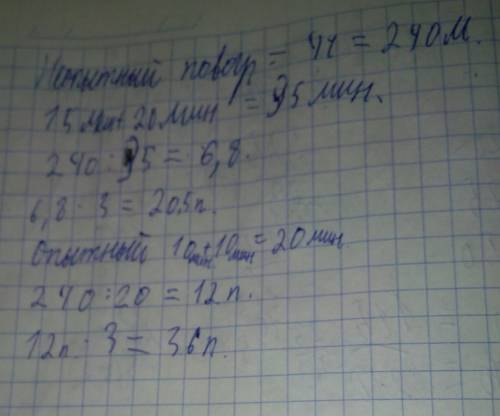 Неопытный повар = 4ч = 240м.
15мин+20мин = 35мин.
240:35 = 6,8.
6,8·3 = 20,5п.
Опытный 10мин+10мин = 20мин
240:20 = 12п.
12п·3 = 36п.